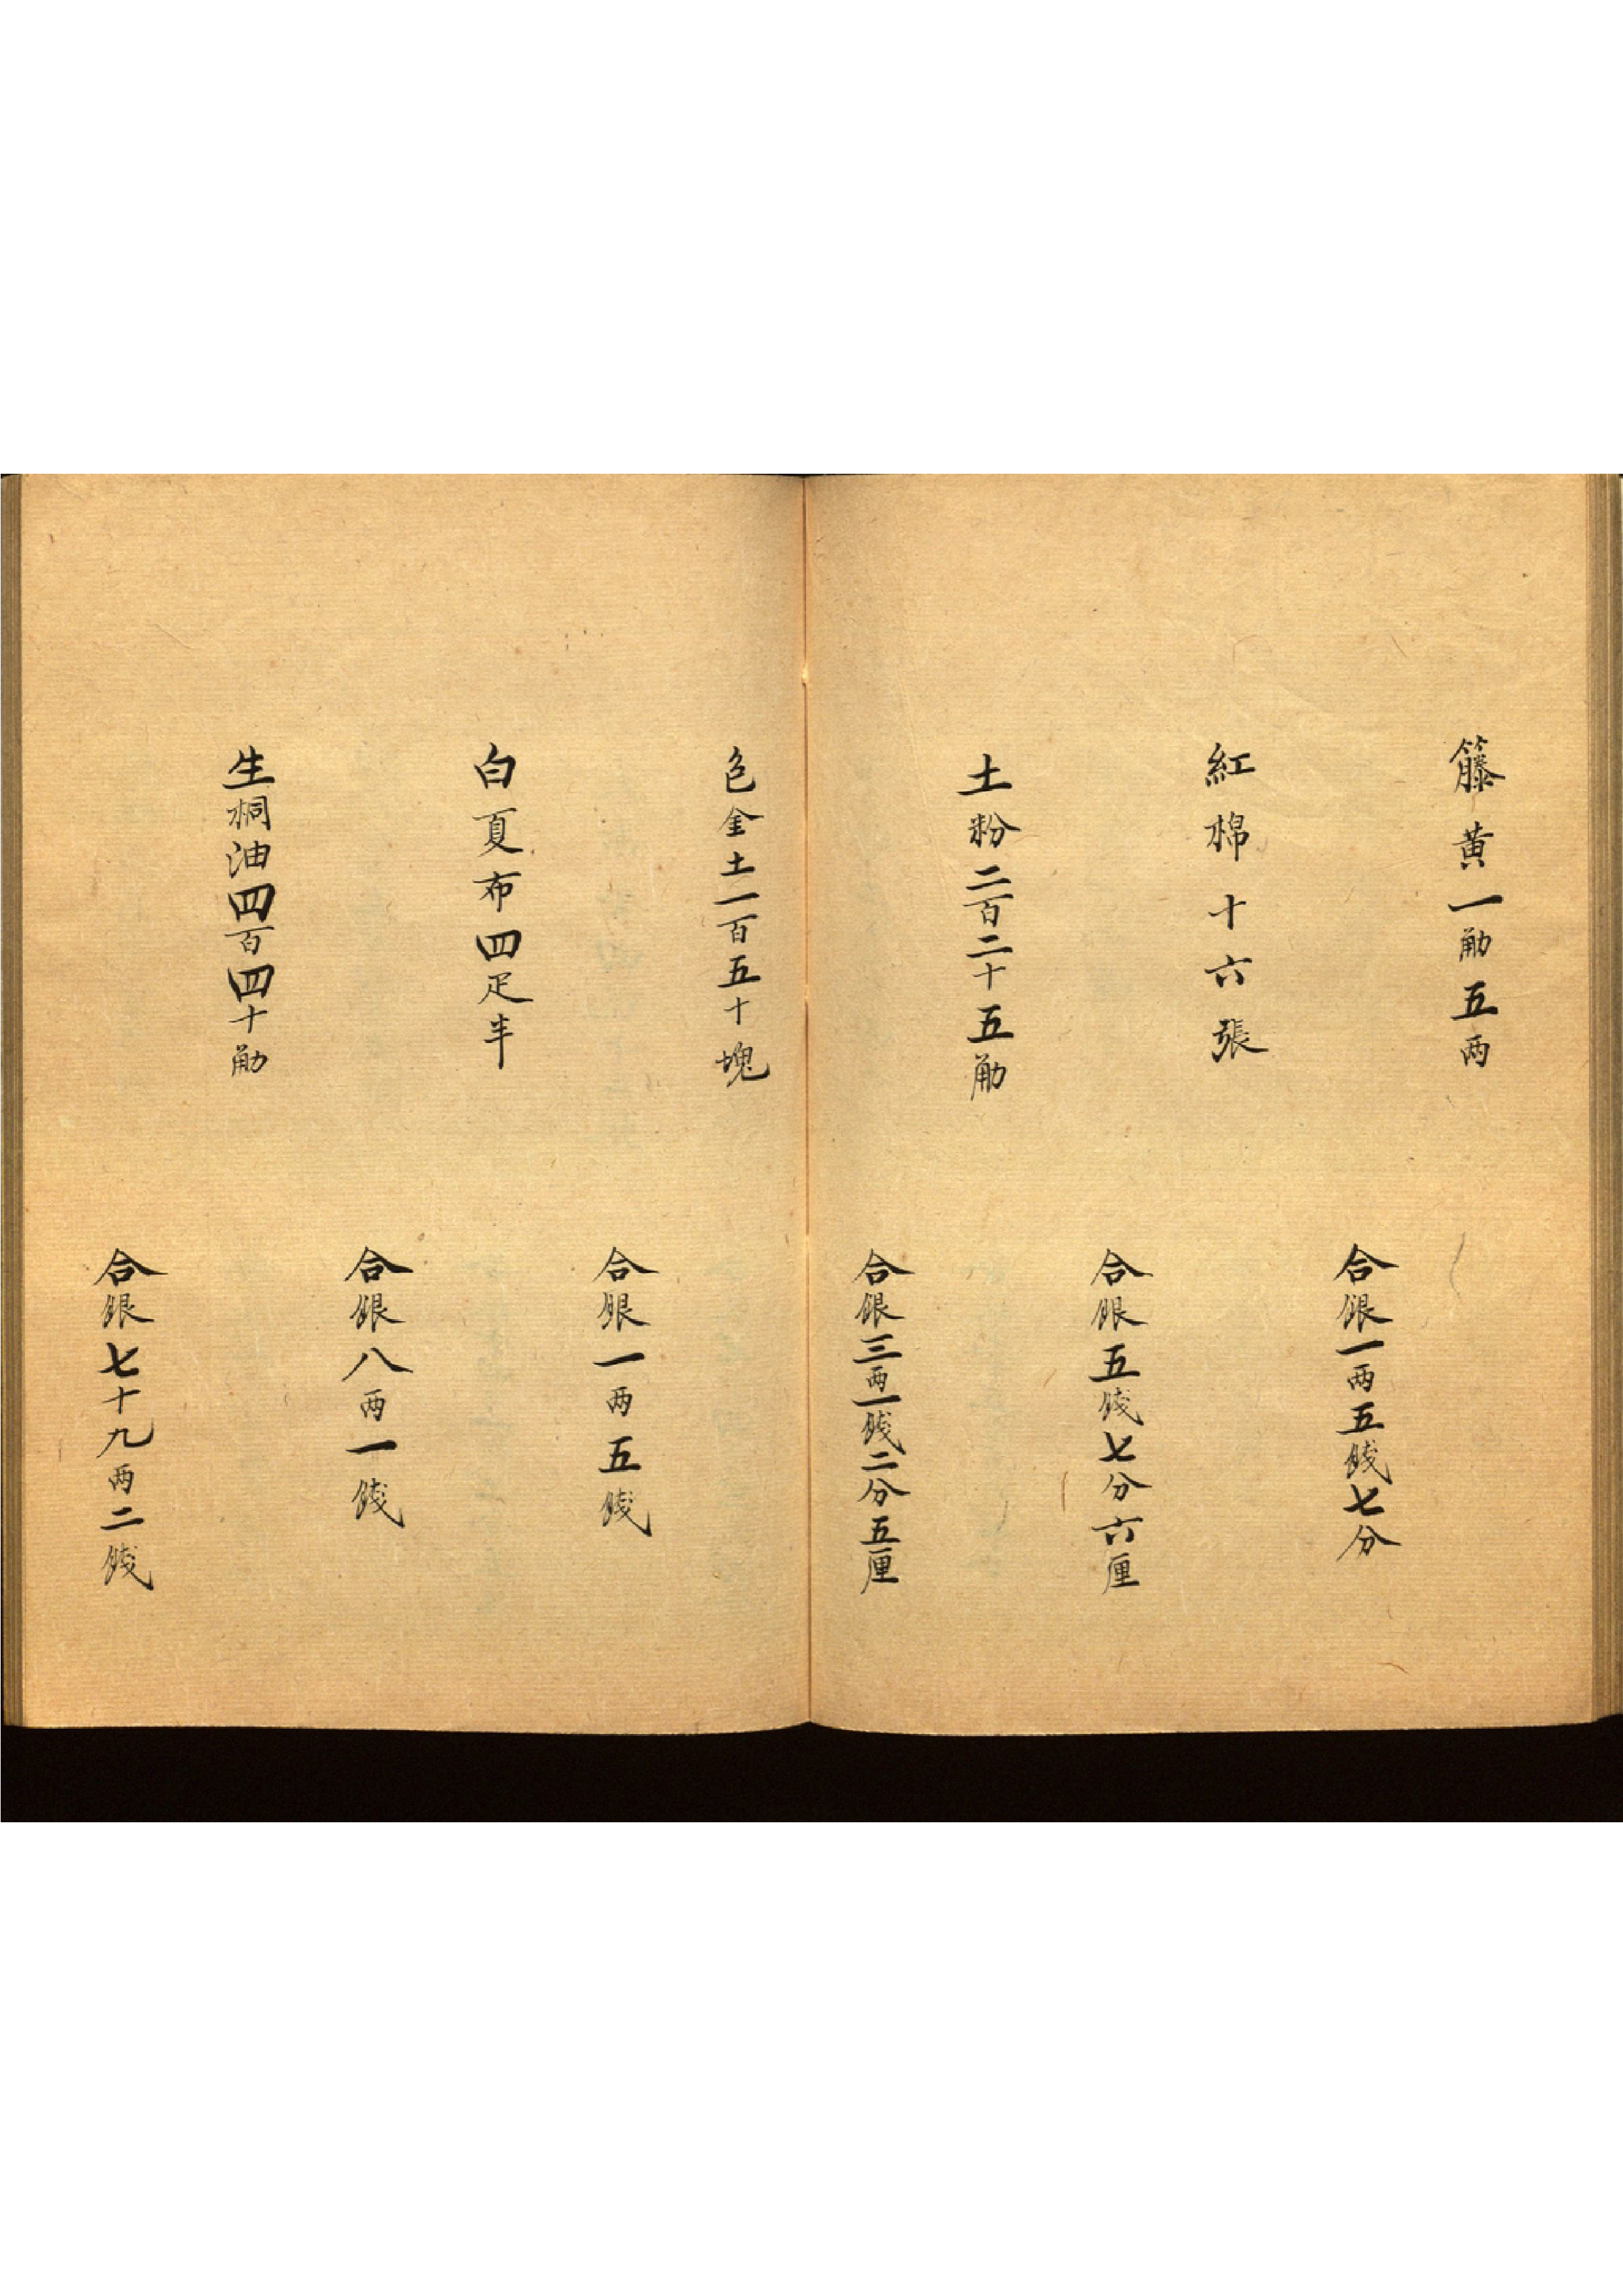 籐黃一觔五两
合銀一两五錢七分
紅棉十六張
合銀五錢七分六厘
土粉二百二十五觔
合銀三两一錢二分五厘
色金土一百五十塊
合銀一两五錢
白夏布四疋半
合銀八两一錢
生桐油四百四十觔
合銀七十九两二錢